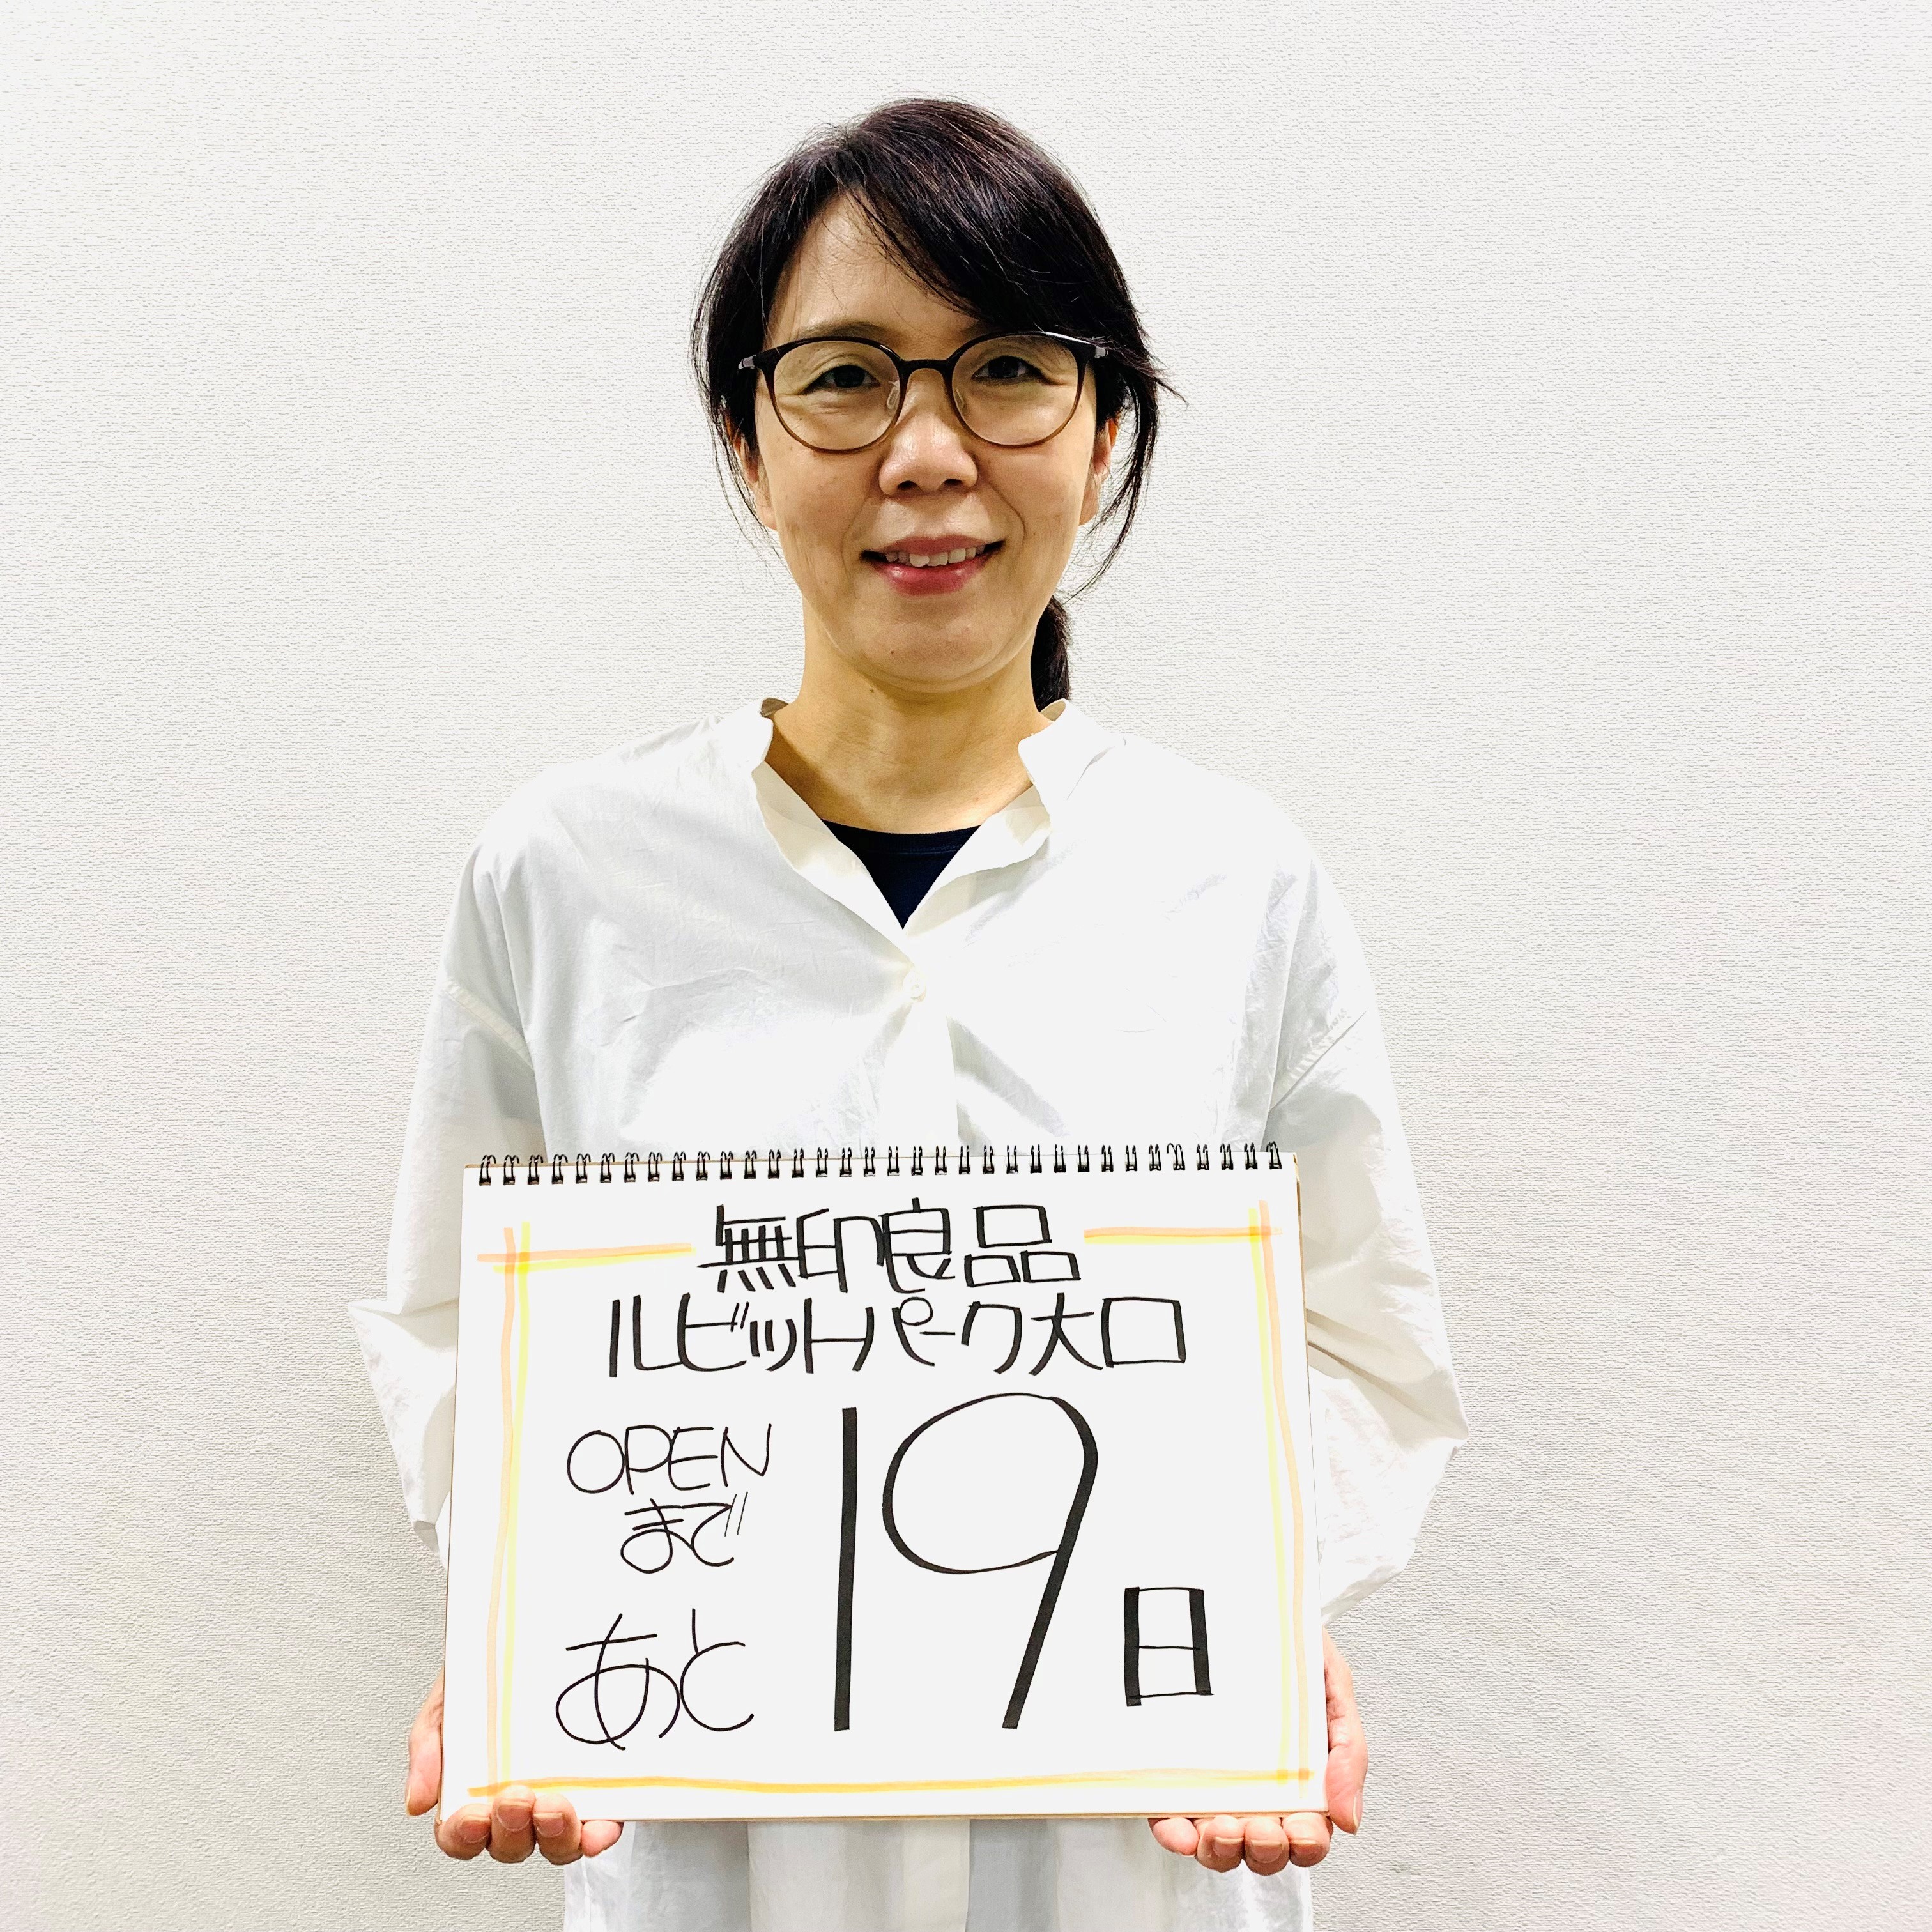 無印良品
ルビットパーク大口
OPEN
まで
あと 19 日